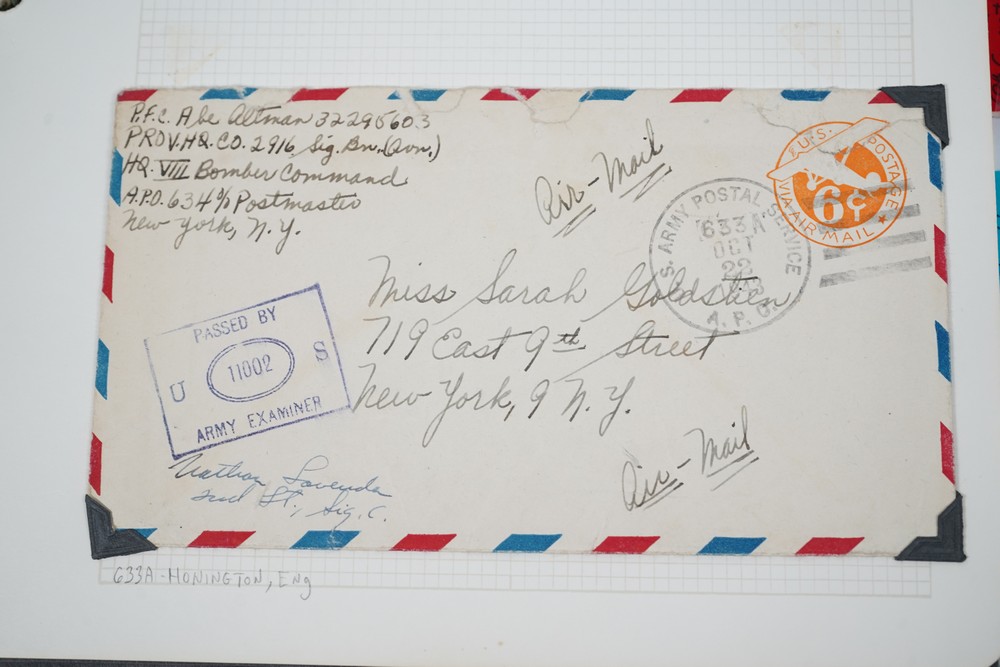 P.F.C. Abe Altman 32295603
PROV. HQ. CO. 2916 Sig. Bn. (Avn.)
HQ. VIII Bomber Command
A.P.O. 634 c/o Postmaster
New York, N.Y.
Air-Mail
U.S. POSTAGE
6¢
VIA AIR MAIL
U.S. ARMY POSTAL SERVICE
633A
OCT
22
1943
A.P.O.
Miss Sarah Goldstien
719 East 9th Street
New York, 9 N.Y.
PASSED BY
U 11002 S
ARMY EXAMINER
Air-Mail
Nathan
2nd Lt., Sig. C.
633A - HONINGTON, ENg